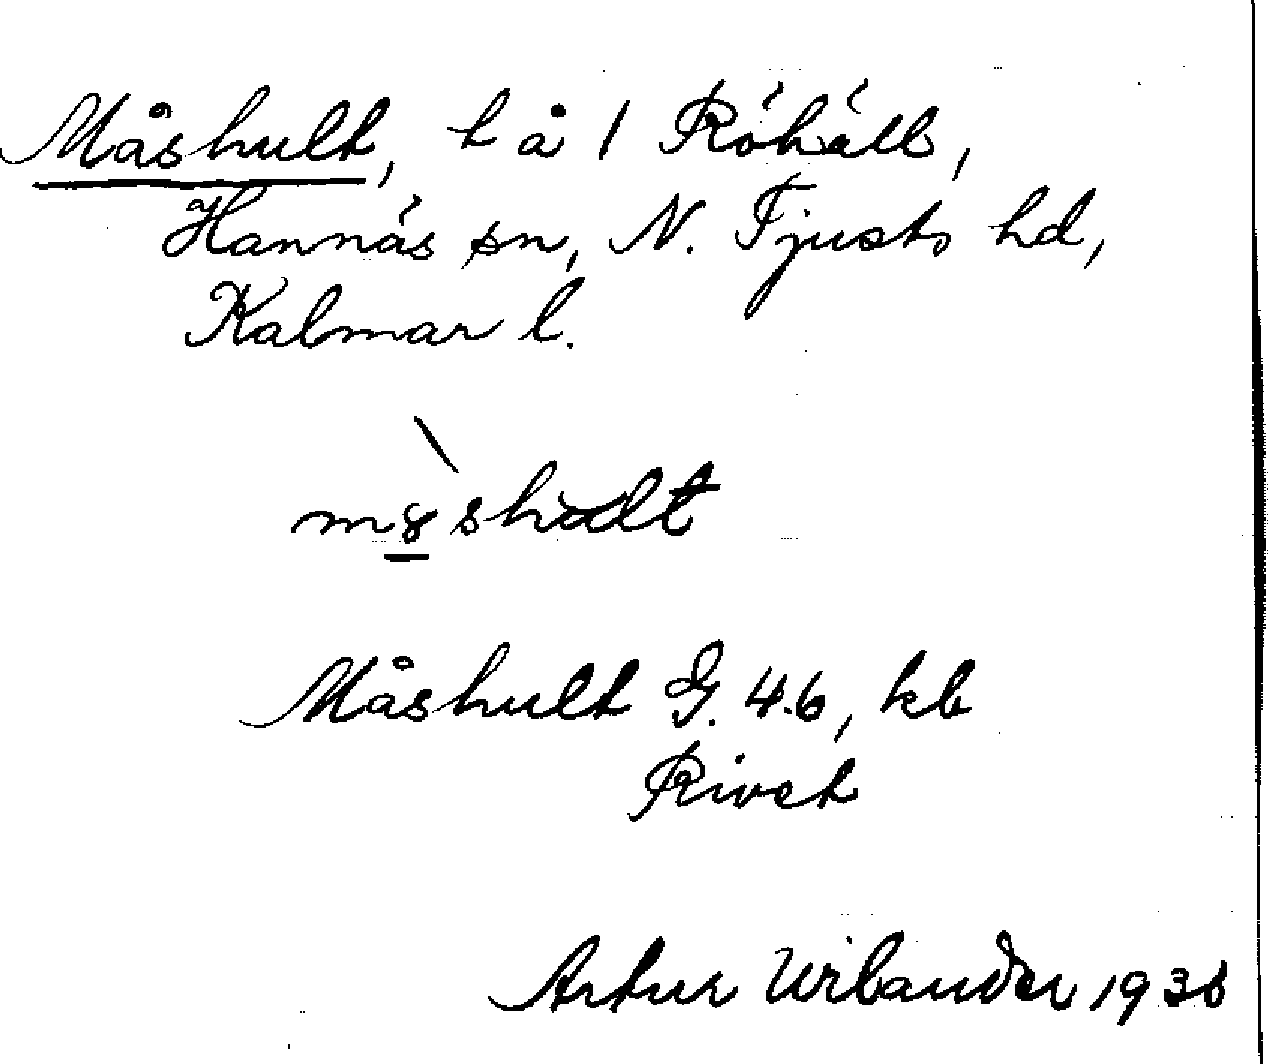 Måshult, t å 1 Röhäll,
Hannäs sn, N. Tjusts hd,
Kalmar l.
Måshult G. 4.6, kb
Rivet
Artur Wilander 1936